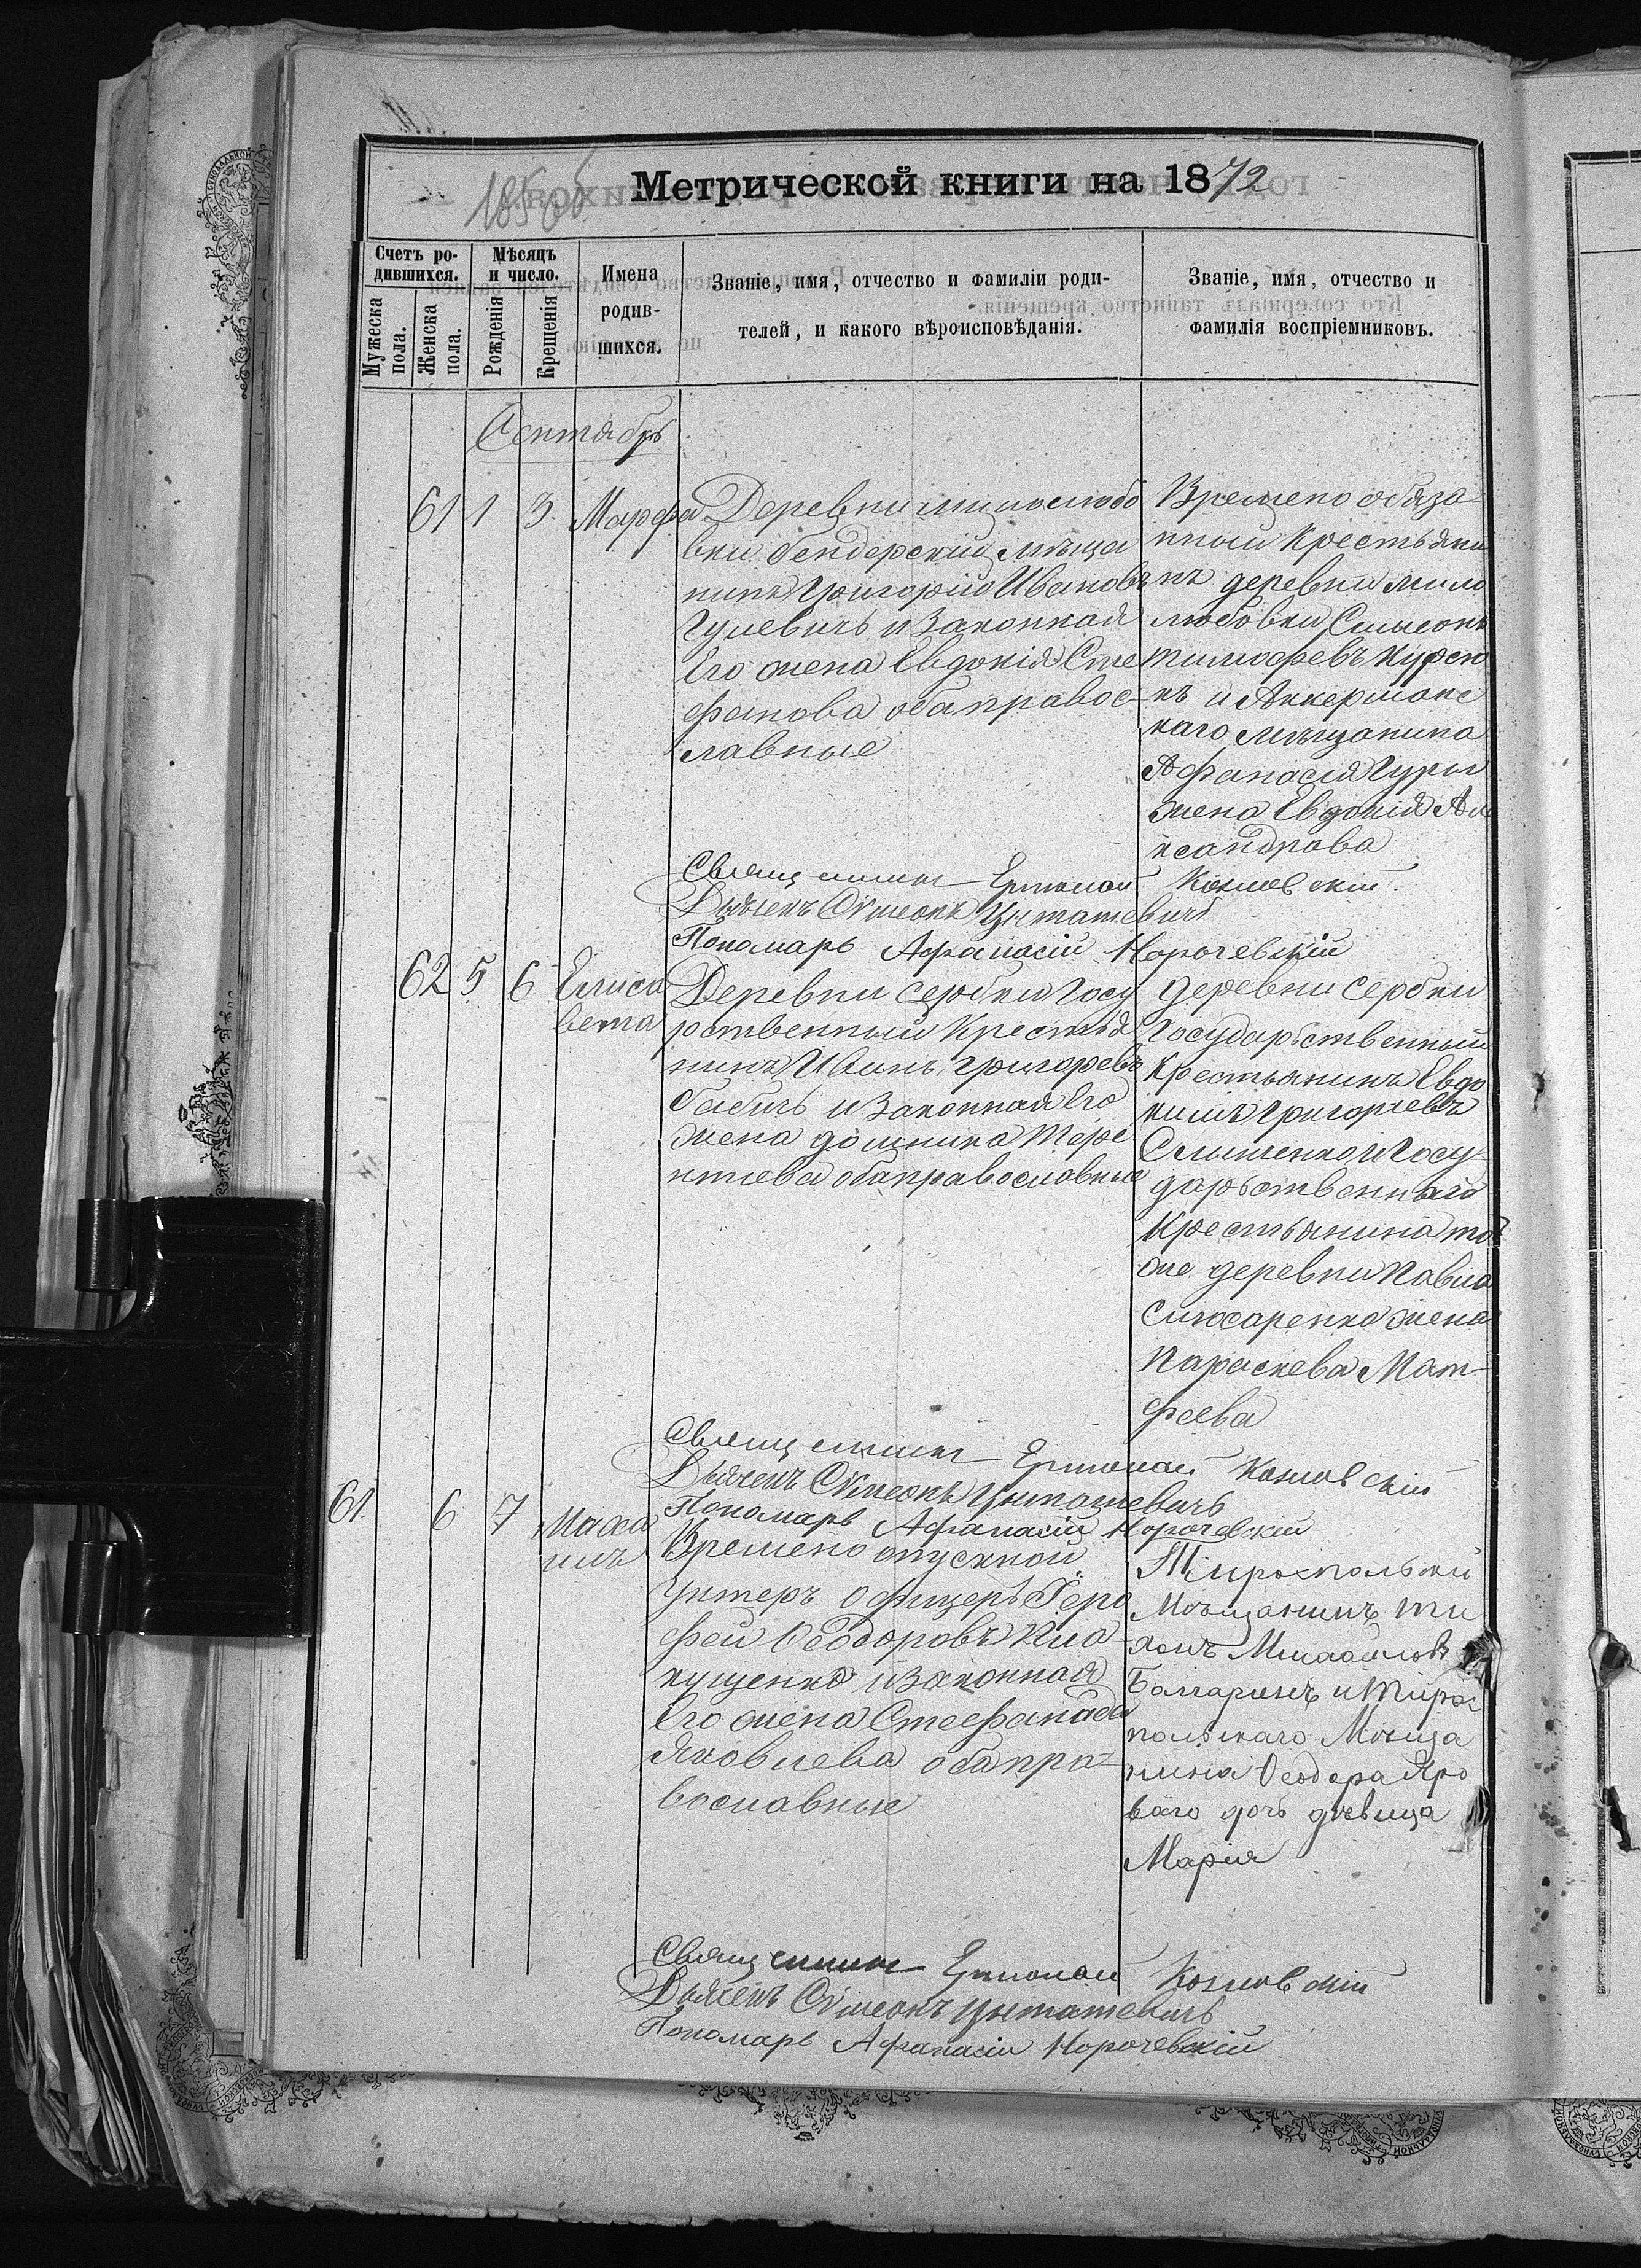 Метрической книги на 1872
185об
Счетъ ро-
дившихся.
Мужеска
пола.
Женска
пола.
Мѣсяцъ
и число.
Рожденія
Крещенія
Имена
родив-
шихся.
Званіе, имя, отчество и фамиліи роди-
телей, и какого вѣроисповѣданія.
Званіе, имя, отчество и
фамилія воспріемниковъ.
Сентябрь
61 1 3 Марфа
Деревни милослюбо
вки бендерский мѣща
нинъ Григорій Ивановъ
Гулевичъ и Законная
Его жена Евдокія Сте
фанова оба правос-
лавные
Времено обяза-
нный Крестьяни
нъ деревни мило
любовки Симеонъ
тимофевъ
нъ и Аккерманс
каго мѣщанина
Афанасія Гуры
жена Евдокія Але
ксандрова
Священникъ Ермолай Козловскій
Дьячекъ Сѵмеонъ Цыташевичъ
Пономарь Афанасій Норочевскій
62 5 6 Елиса
вета
Деревни Сербки Госу
рственный Крестья
нинъ Иванъ Григоревъ
бабичъ и Законная Его
жена домника Тере
нтиева оба православные
Деревни Сербки
Государьственный
Крестьянинъ Евдо
кимъ Григориевъ
и Госу-
дарьственнаго
Крестьянина той
же деревни Павла
Слюсаренка жена
Параскева Мат-
феева
Священникъ Ермолай Козловскій
Дьячекъ Сѵмеонъ Цыташевичъ
Пономарь Афанасій Норочевскій
61 6 7 Макси
мъ
Времено отпускной
Унтеръ офицеръ
фей Ѳеодоровъ
кущенко и Законная
Его жена Стефанида
Яковлева оба пра-
вославные
Тироспольскій
Мѣщанинъ ти
хонъ Михайловъ
Балгаринъ и Тирас
польскаго Мѣща
нина Ѳеодора Яро
ваго дочь дѣвица
Марія
Священникъ Ермолай Козловскій
Дьячекъ Сѵмеонъ Цыташевичъ
Пономарь Афанасій Норочевскій